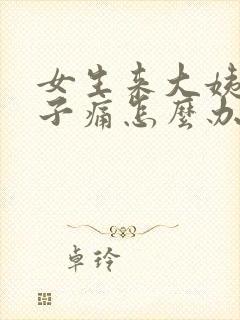 女生来大姨
子痛怎麼办
卓玲